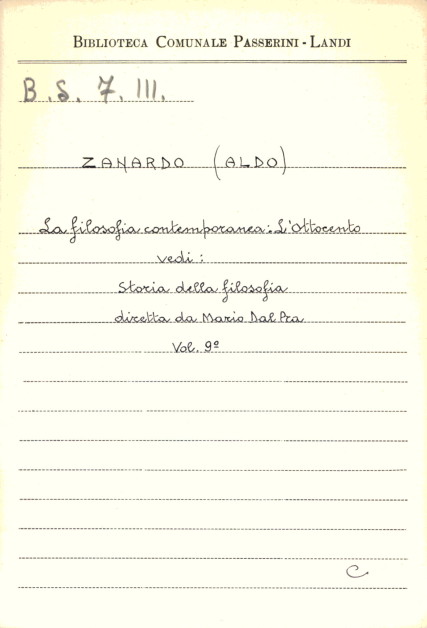 BIBLIOTECA COMUNALE PASSERINI - LANDI
B. S. 7. III.
ZANARDO (ALDO)
La filosofia contemporanea: L'Ottocento
vedi:
Storia della filosofia
diretta da Mario Dal Pra
Vol. 9º
C